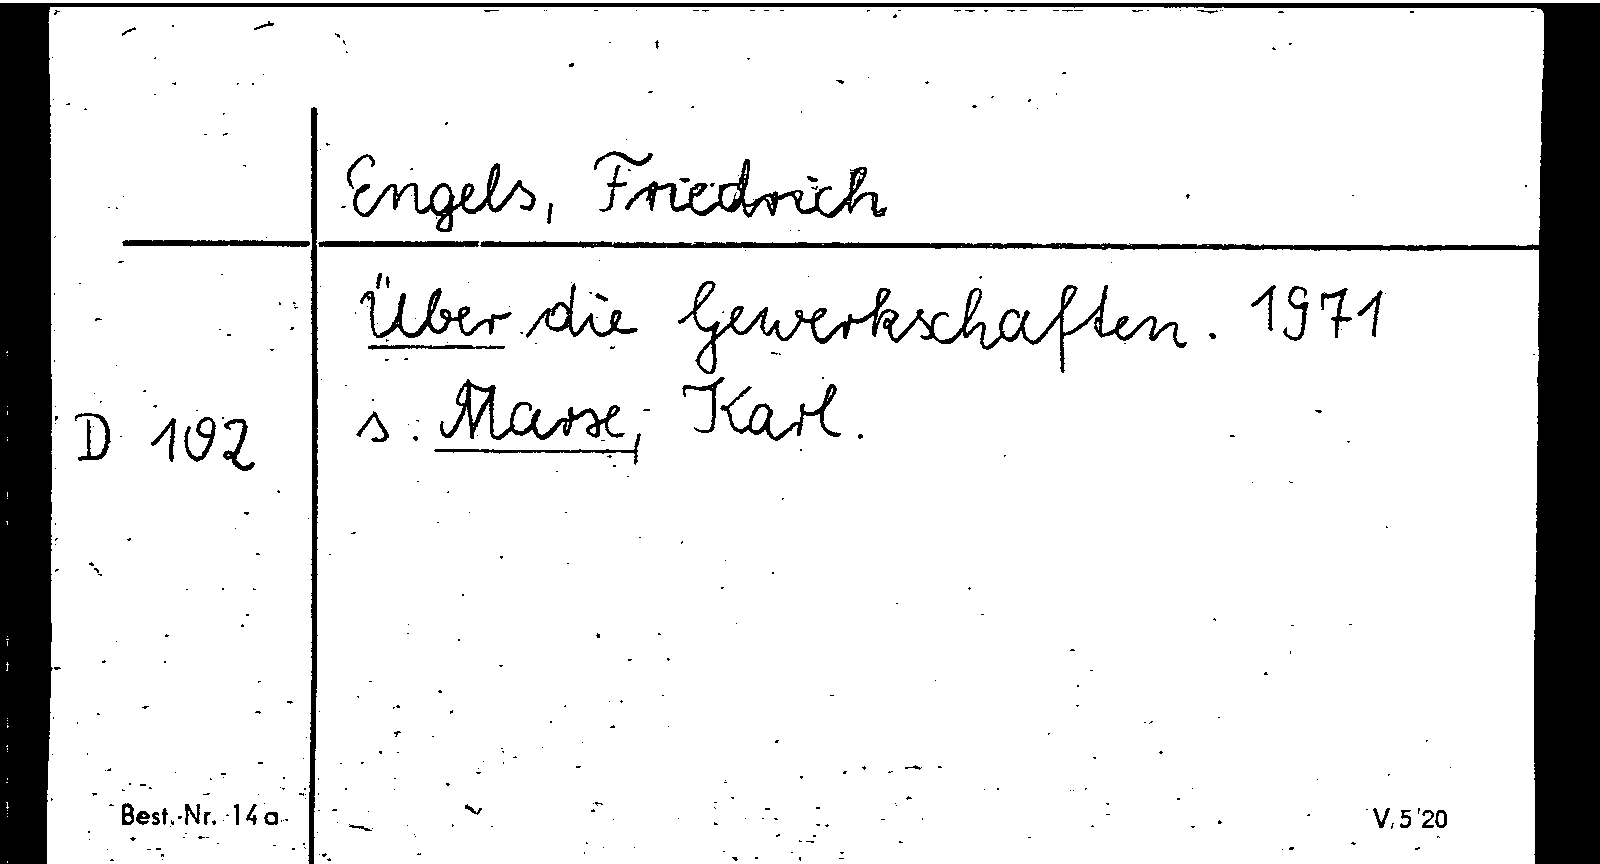 Engels, Friedrich
Über die Gewerkschaften. 1971
D 102 s. Marx, Karl.
Best.-Nr. 14a V, 5'20